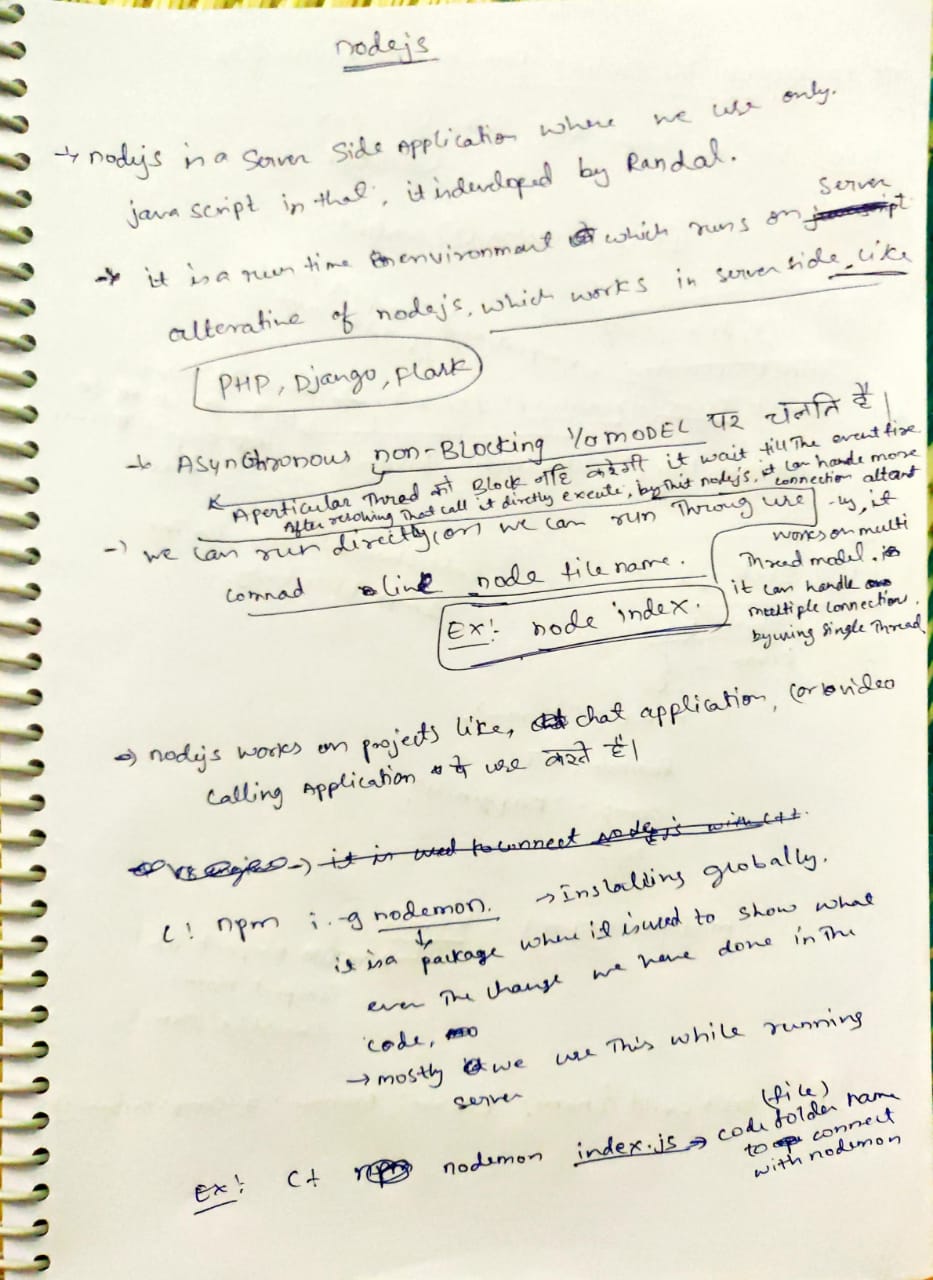 nodejs
→ nodejs is a Server Side Application where we use only.
java script in that, it is developed by Randal.
→ it is a run time environment which runs on server
alterative of nodejs, which works in server side, like
PHP, Django, Flask
→ Asynchronous non-Blocking I/O MODEL पर चलति है।
A perticular Thred को Block नहि करेगी it wait till The event fire
After resolving That call it dirctly execute, by this nodejs, it can handle more
connection altant
we can run directly (or) we can run Throug use
comnad line node file name.
Ex:- node index.
-ly, it
works on multi
Thread model.
it can handle
multiple connection,
by using single Thread
→ nodejs works on projects like, chat application, (or) video
calling Application में use करते है।
→ it is used to connect nodejs with c++.
C! npm i -g nodemon. → Installing globally.
it is a package where it is used to show what
ever The change we have done in The
code,
→ mostly we use This while running
server
Ex:- C+ nodemon index.js → code folder name
(file)
to connect
with nodemon